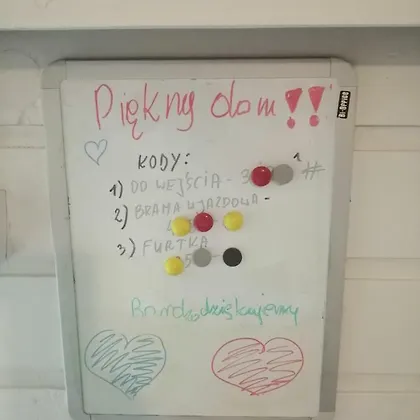 Piękny dom !!
Bi-OFFICE
KODY:
1) DO WEJŚCIA - 3 #
2) BRAMA WJAZDOWA -
3) FURTKA
5
Bardzo dziękujemy